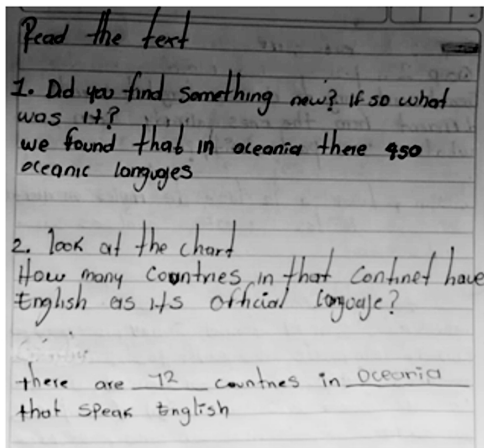 Read the text
1. Did you find something new? if so what
was it?
we found that in oceania there 450
oceanic longuges
2. look at the chart
How many countries in that continet have
English as its official longuaje?
there are 12 countries in Oceania
that speak English